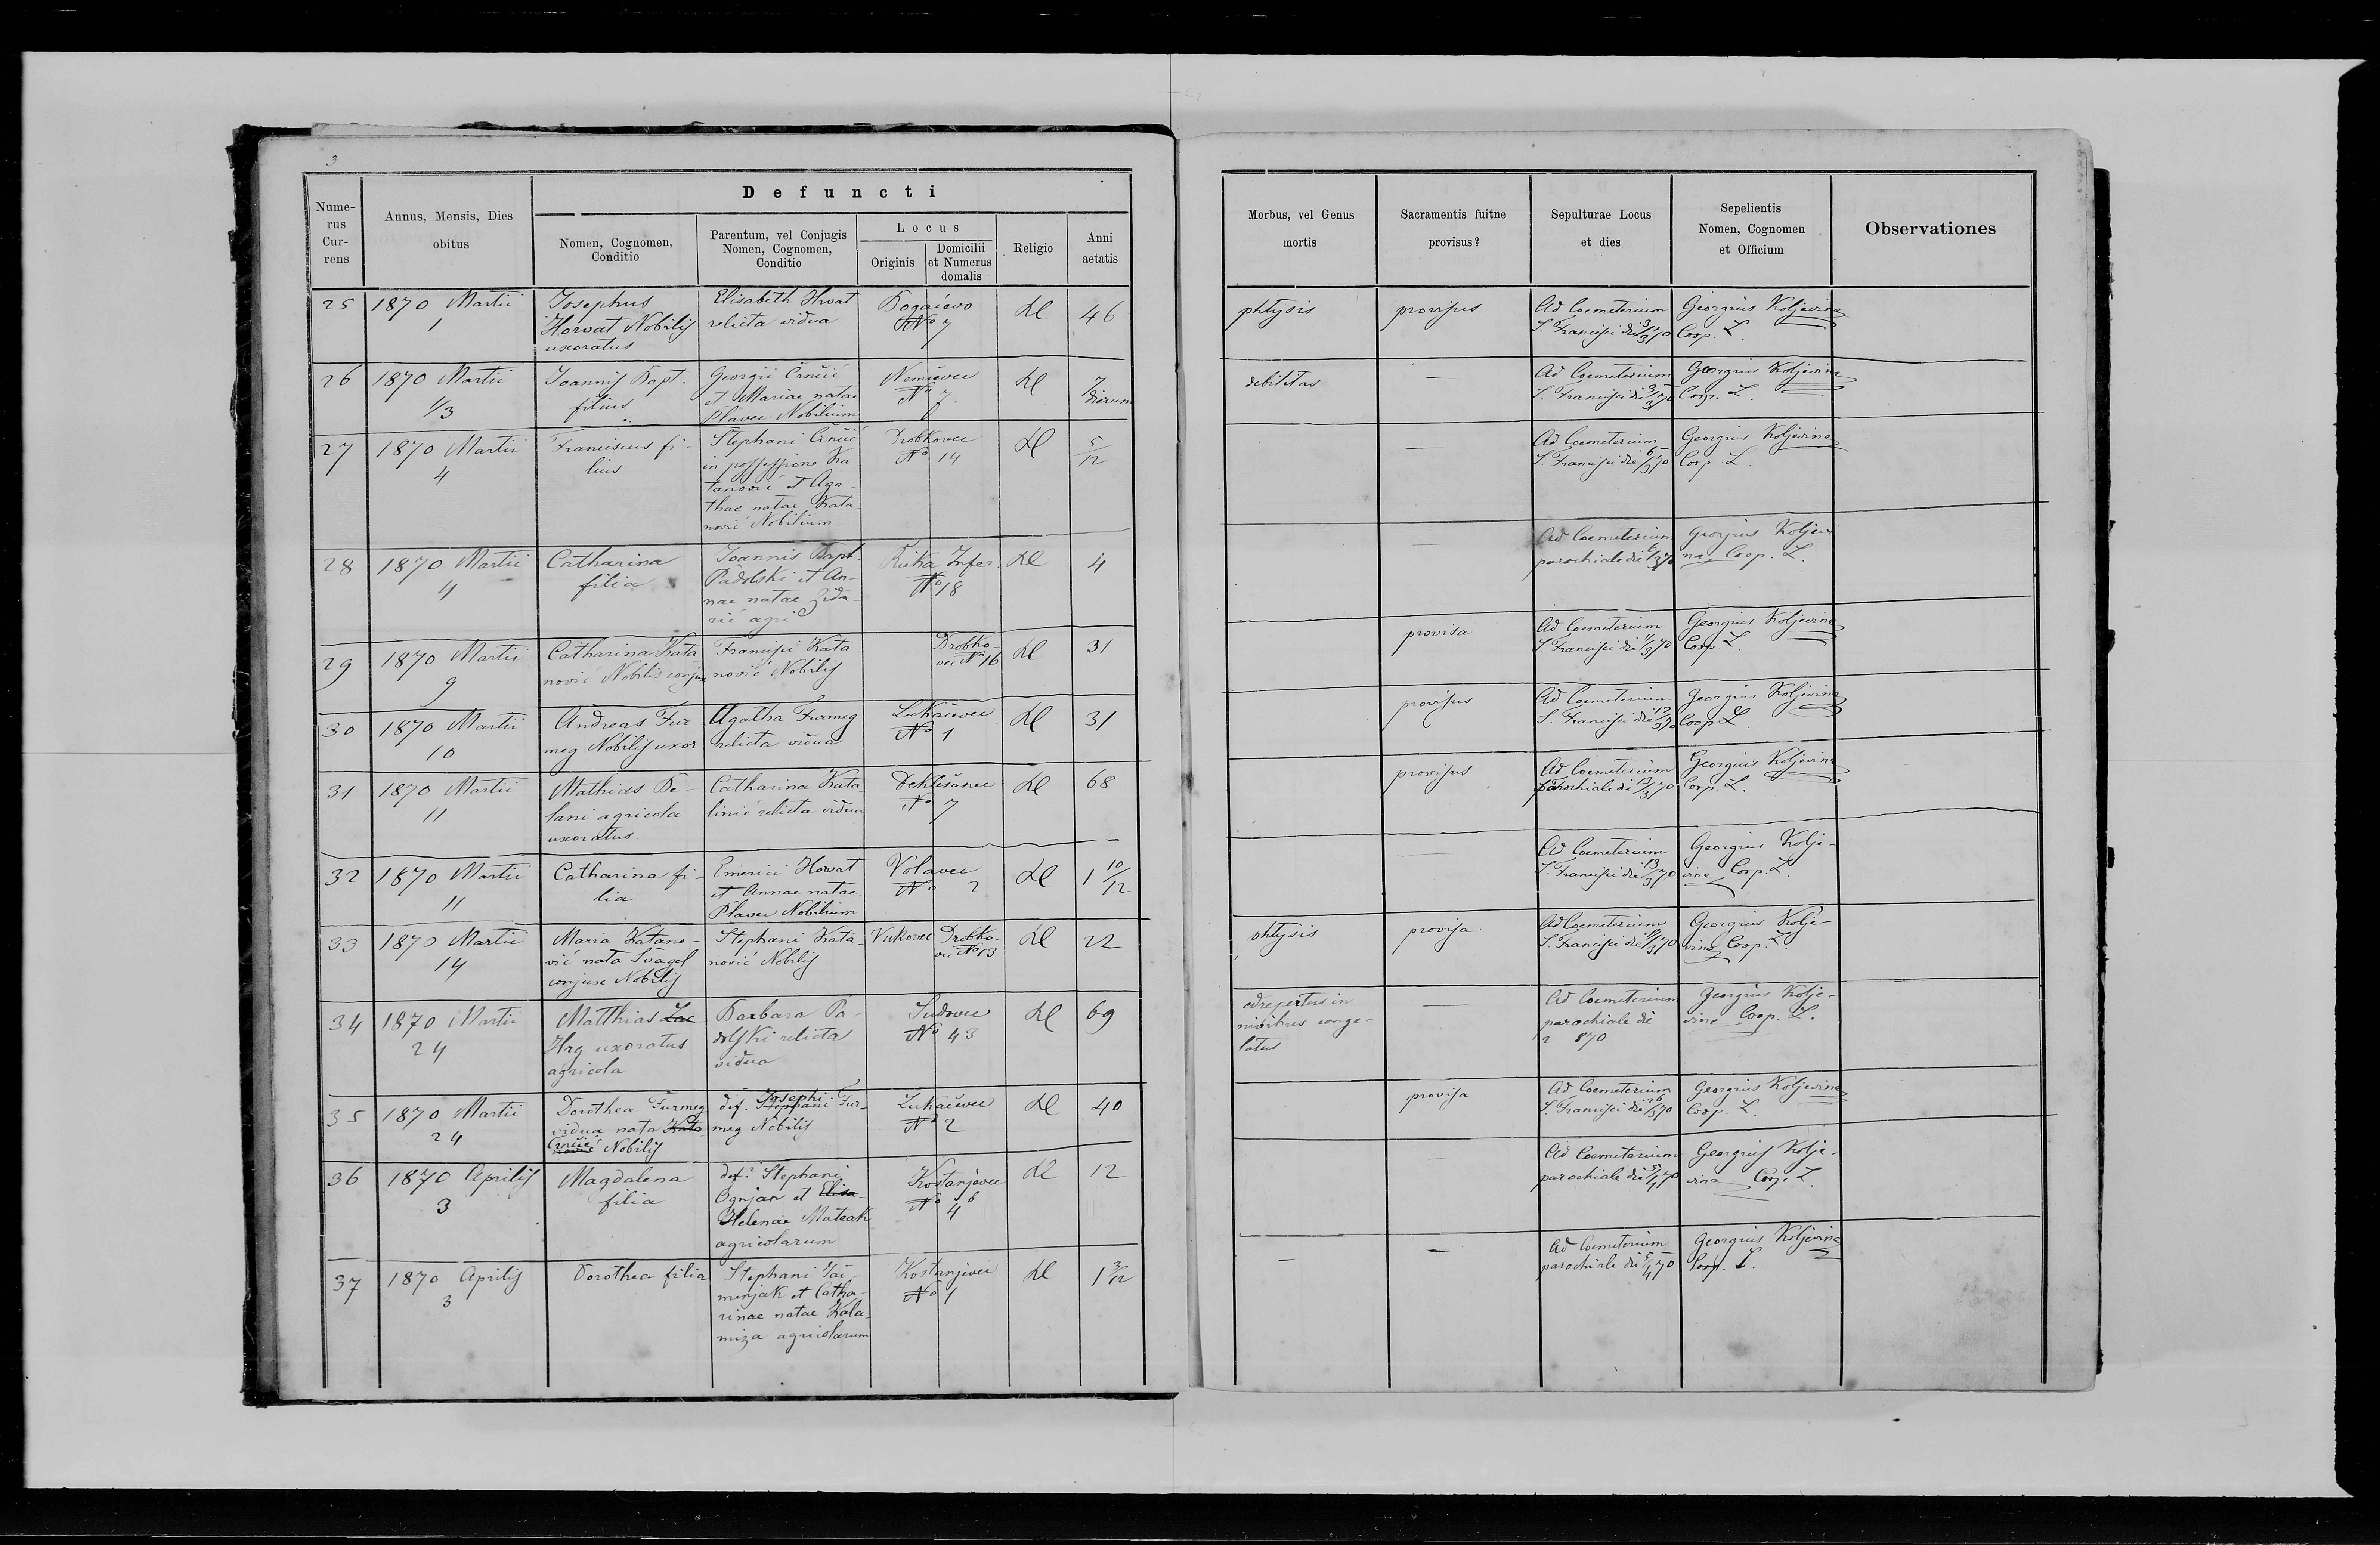 3
Defuncti
Nume-
rus
Cur-
rens
Annus, Mensis, Dies
obitus
Nomen, Cognomen,
Conditio
Parentum, vel Conjugis
Nomen, Cognomen,
Conditio
Locus
Originis
Domicilii
et Numerus
domalis
Religio
Anni
aetatis
Morbus, vel Genus
mortis
Sacramentis fuitne
provisus?
Sepulturae Locus
et dies
Sepelientis
Nomen, Cognomen
et Officium
Observationes
25
1870 Martii
1
Josephus
Horvat Nobilis
uxoratus
Elisabeth Hrvat
relicta vidua
Bogačevo
No 7
46
phtysis
provisus
Ad Coemeterium
S. Francisci die 3/3 70
Georgius Koljevina
Coop. L.
26
1870 Martii
1/3
Joannis Bapt.
filius
Georgii Črnčić
et Mariae natae
Plavec Nobilium
Nemčevec
No 7
7
dierum
debilitas
—
Ad Coemeterium
S. Francisci die 3/3 70
Georgius Koljevina
Coop. L.
27
1870 Martii
4
Franciscus fi-
lius
Stephani Črnčić
in possessione Ka-
tanović et Aga-
thae natae Kata-
nović Nobilium
Drobkovec
No 14
5/12
—
Ad Coemeterium
S. Francisci die 6/3 70
Georgius Koljevina
Coop L.
28
1870 Martii
4
Catharina
filia
Joannis Bapt.
Padolski et An-
nae natae Zida-
rić agri
Rieka Infer.
No 18
4
—
Ad Coemeterium
parochiale die 6/3 70
Georgius Koljevi
na Coop. L.
29
1870 Martii
9
Catharina Kata
nović Nobilis conjux
Francisci Kata
nović Nobilis
Drobko-
vec No 16
31
provisa
Ad Coemeterium
S. Francisci die 11/3 70
Georgius Koljevina
Coop. L.
30
1870 Martii
10
Andreas Fur
meg Nobilis uxor
Agatha Furmeg
relicta vidua
Lukačevec
No 1
31
provisus
Ad Coemeterium
S. Francisci die 12/3 70
Georgius Koljevina
Coop. L.
31
1870 Martii
11
Mathias Be-
lani agricola
uxoratus
Catharina Kata
linić relicta vidua
Deklešanec
No 7
68
provisus
Ad Coemeterium
parochiale die 13/3 70
Georgius Koljevina
Coop. L.
32
1870 Martii
11
Catharina fi-
lia
Emerici Horvat
et Annae natae
Plavec Nobilium
Volavec
No 2
1 10/12
—
Ad Coemeterium
S. Francisci die 13/3 70
Georgius Kolje-
vina Coop. L.
33
1870 Martii
14
Maria Katano-
vić nata Švagel
conjux Nobilis
Stephani Kata-
nović Nobilis
Vukovec
Drobko-
vec No 13
22
phtysis
provisa
Ad Coemeterium
S. Francisci die 70
Georgius Kolje-
vina Coop. L.
34
1870 Martii
24
Matthias
Hrg uxoratus
agricola
Barbara Pa-
dolski relicta
vidua
Sudovec
No 43
69
adrepertus in
nivibus conge-
latus
—
Ad Coemeterium
parochiale die
2 870
Georgius Kolje-
vina Coop. L.
35
1870 Martii
24
Dorothea Furmeg
vidua nata Kata
Črnčić
nović Nobilis
Josephi
def. Stephani Fur-
meg Nobilis
Lukačevec
No 2
40
provisa
Ad Coemeterium
S. Francisci die 26/3 70
Georgius Koljevina
Coop. L.
36
1870 Aprilis
3
Magdalena
filia
def. Stephani
Ognjan et Elisa-
Helenae Mateak
agricolarum
Kostanjevec
No 46
12
—
Ad Coemeterium
parochiale die 5/4 70
Georgius Kolje-
vina Coop. L.
37
1870 Aprilis
3
Dorothea filia
Stephani Jai-
minjak et Catha-
rinae natae Kala-
miza agricolarum
Kostanjevec
No 1
1 3/12
—
—
Ad Coemeterium
parochiale die 5/4 70
Georgius Koljevina
Coop. L.